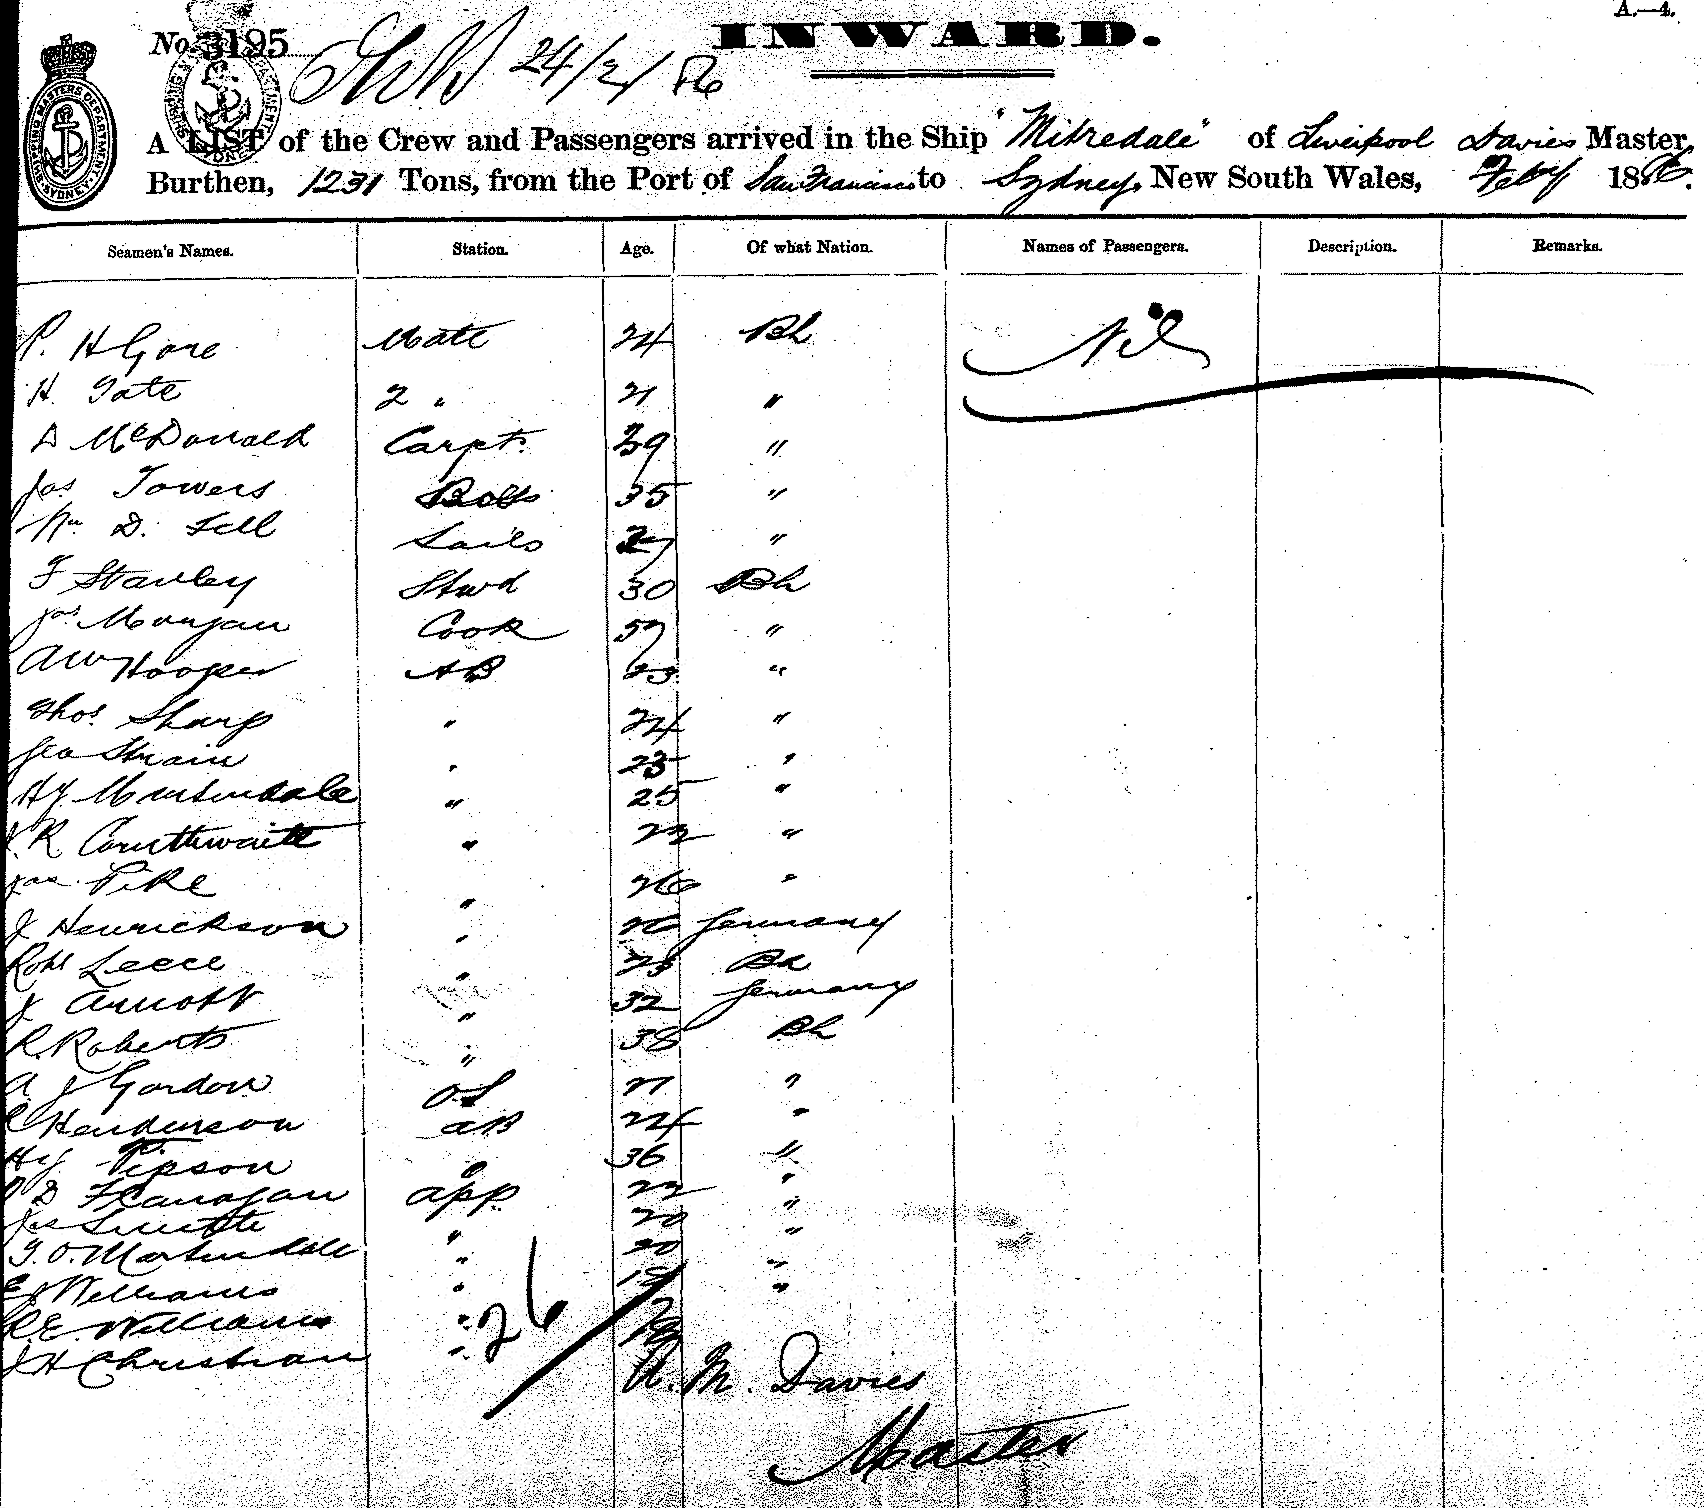 A.—4.
No. 3195
24/2/86
INWARD.
A LIST of the Crew and Passengers arrived in the Ship "Mitredale" of Liverpool Davies Master,
Burthen, 1231 Tons, from the Port of San Francisco to Sydney, New South Wales, Feby 1886.
Seamen's Names. Station. Age. Of what Nation. Names of Passengers. Description. Remarks.
P. H Gore Mate 24 Bh Nil
H. Tate 2 " 21 "
D McDonald Carpt. 39 "
Jas Towers 35 "
Wm D. Fell Sails 27 "
F Stanley Stwd 30 Bh
Jas Morgan Cook 57 "
AW Hooper AB 23 "
Thos. Sharp " 24 "
Geo Strain " 23 "
Hy. Martindale " 25 "
R Couthwaite " 22 "
Jas Pike " 26 "
J Henrickson " 26 Germany
Robt Leece " 23 Bh
J Arnott " 32 Germany
R. Roberts " 38 Bh
A J Gordon OS 21 "
C Henderson AB 24 "
Hy Tipson " 36 "
D Flanagan app 22 "
Jas " 20 "
T. O. Martindale " 20 "
E J Williams " 18 "
R. E. Williams "
J H Christian "
26
A. M. Davies
Master